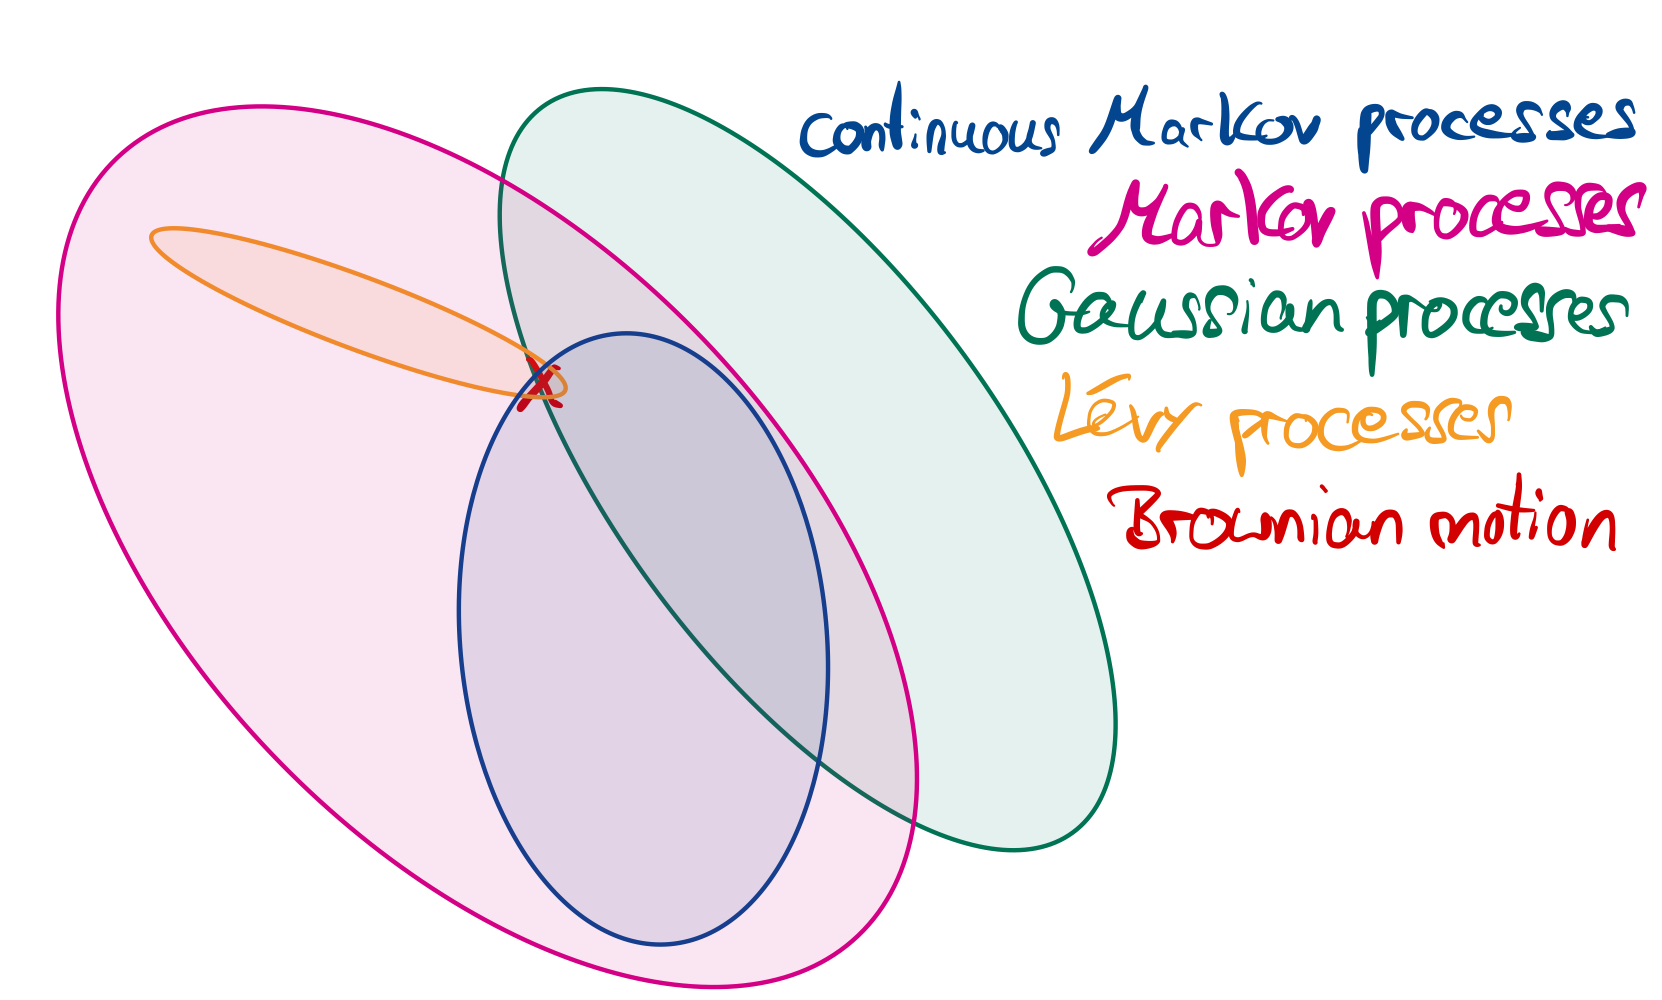 continuous Markov processes
Markov processes
Gaussian processes
Lévy processes
Brownian motion